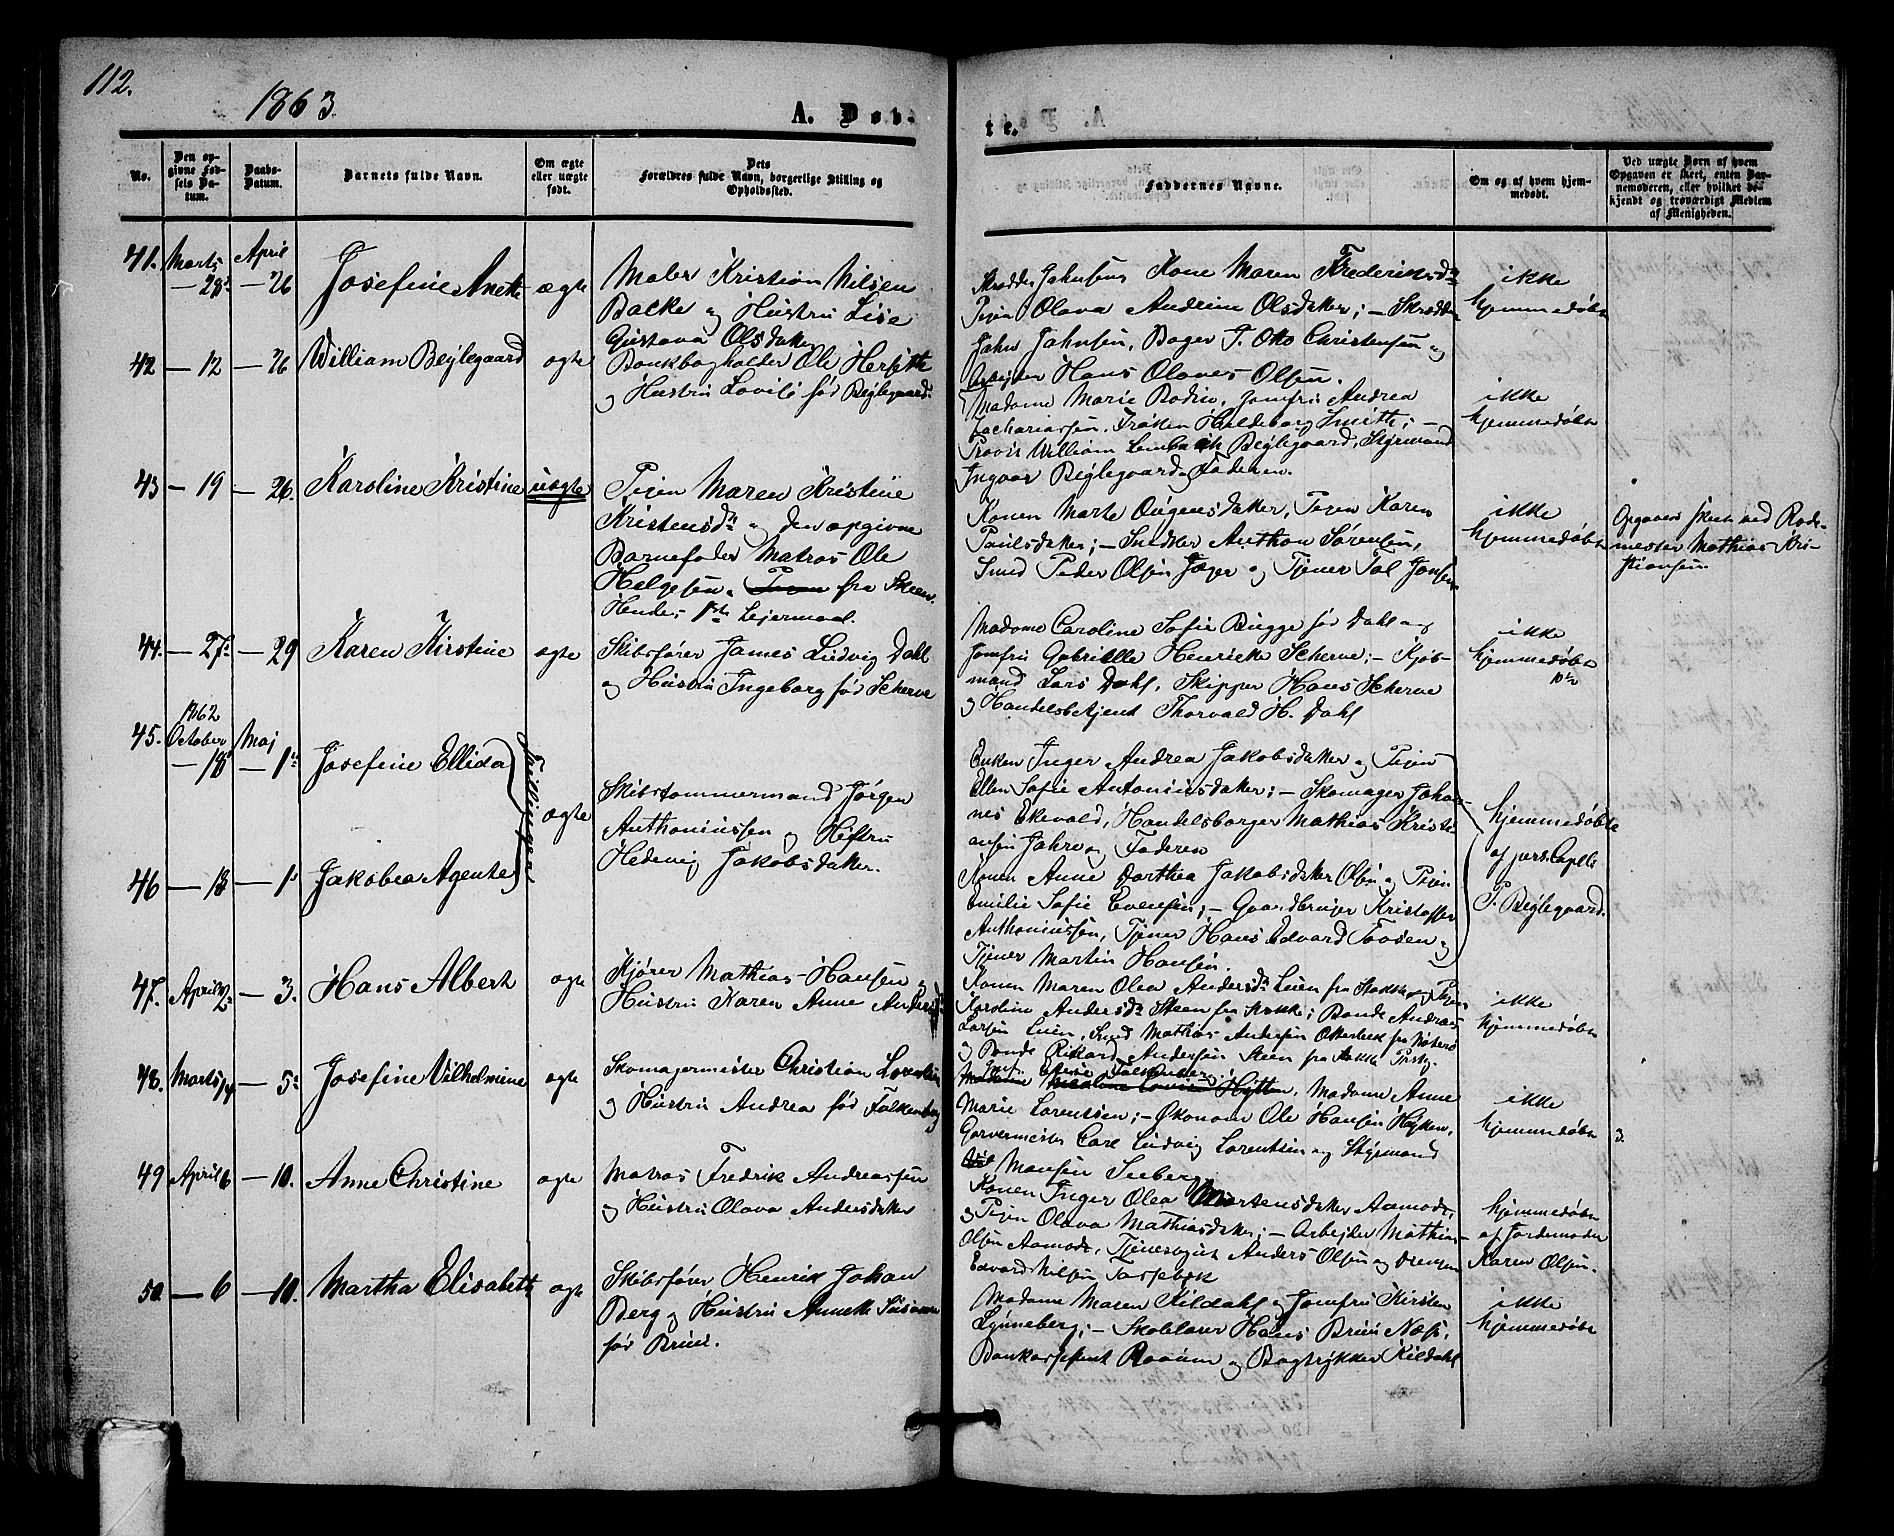 112.
1863.
A. Døb-
te.
No.
Den op-
givne Fød-
sels Da-
tum.
Daabs-
Datum.
Barnets fulde Navn.
Om ægte
eller uægte
født.
Dets
Forældres fulde Navn, borgerlige Stilling og
Opholdssted.
Faddernes Navne.
Om og af hvem hjem-
medøbt.
Ved uægte Børn af hvem
Opgaven er skeet, enten Bar-
nemoderen, eller hvilket be-
kjendt og troværdigt Medlem
af Menigheden.
41. Marts April
— 28 — 26 Josefine Anette ægte
Maler Kristian Nilsen
Balke og Hustru Lise
Gustava Olsdatter
Skrædder Jahnsens Kone Maren Frederiksdr
Pigen Olava Andrine Olsdatter; — Skrædder
Jahn Jahnsen, Bager J. Otto Christensen og
Arbejder Hans Olaves Olsen.
ikke
hjemmedøbt
42 — 12 — 26 William Bejlegaard ægte
Bankbogholder Ole Hersith
og Hustru Lovise før Bejlegaard.
Madame Marie Bodin, Jomfru Andrea
Zachariassen, Frøken Hildeborg Smith; —
Provis William Lembach Bejlegaard, Styrmand
Ingvar Bejlegaard, Faderen.
ikke
hjemmedøbt
43 — 19 — 26. Karoline Kristine uægte
Pigen Maren Kristine
Kristensdr og den opgivne
Barnefader Matros Ole
Helgesen, fra Skeen.
Hendes 1ste Lejermaal.
Konen Marte Eugensdatter, Pigen Karen
Paulsdatter; — Snedker Anthon Sørensen,
Smed Peder Olsen Jæger og Tjener Jonsen
ikke
hjemmedøbt
Opgaven skeet ved Rode-
mester Mathias Kri-
stiansen
44. — 27 — 29 Karen Kirstine ægte
Skibsfører James Ludvig Dahl
og Hustru Ingeborg før Scherve
Madame Caroline Sofie Bugge før Dahl og
Jomfru Gabrielle Henrieke Scherve; — Kjøb-
mand Lars Dahl, Skipper Hans Scherve
og Handelsbetjent Thorvald H. Dahl
ikke
hjemmedøbt
45. 1862
October Maj
— 18 — 1 Josefine Ellida
Tvillinger
ægte
Skibstømmermand Jørgen
Anthoniussen og Hustru
Hedevig Jakobsdatter.
Enken Inger Andrea Jakobsdatter og Pigen
Ellen Sofie Antoniusdatter; — Skomager Johan-
nes Ekevald, Handelsborger Mathias Kristi-
ansen Jahre og Faderen
hjemmedøbte
af pers. Capell.
P. Bejlegaard.
46 — 18 — 1 Jakobea Agente
Konen Anne Dorthea Jakobsdatter Olsen og Pigen
Emilie Sofie Evensen; — Gaardbruger Kristoffer
Anthoniussen, Tjener Hans Edvard Foosen og
Tjener Martin Hansen.
47. April 2 — 3. Hans Albert ægte
Kjører Mathias Hansen og
Hustru Karen Anne Andersdr
Konen Maren Olea Andersdr Luen fra Stokke og Pigen
Karoline Andersdr Steen fra Stokke; Bonde Andreas
Larsen Luen, Smed Mathias Andersen fra Nøterø
og Bonde Rikard Andersen Steen fra Stokke Prstg.
ikke
hjemmedøbt
48. Marts 14 — 5 Josefine Vilhelmine ægte
Skomagermester Christian Lorentsen
og Hustru Andrea før Falkenberg
Madame Hytten, Madame Anne
Marie Lorentsen; — Økonom Ole Hansen Højken,
Garvermester Carl Ludvig Lorentsen og Styrmand
Monsen Seeberg
ikke
hjemmedøbt
49 April 6 — 10. Anne Christine ægte
Matros Fredrik Andreassen
og Hustru Olava Andersdatter
Konen Inger Olea Mortensdatter Aamodt,
og Pigen Olava Mathiasdatter; — Arbejder Mathias
Olsen Aamodt, Tjenestegut Anders Olsen og Drengen
Edvard Nilsen Tassebæk
hjemmedøbt
af Jordemoder
Karen Olsen.
50. — 6 — 10. Martha Elisabeth ægte
Skibsfører Henrik Johan
Berg og Hustru Annette Susanne
før Bruu.
Madame Maren Kildahl og Jomfru Kirsten
Lynneberg; — Skolelærer Hans Bruu Næss,
Bankassistent og Bogtrykker Kildahl
ikke
hjemmedøbt